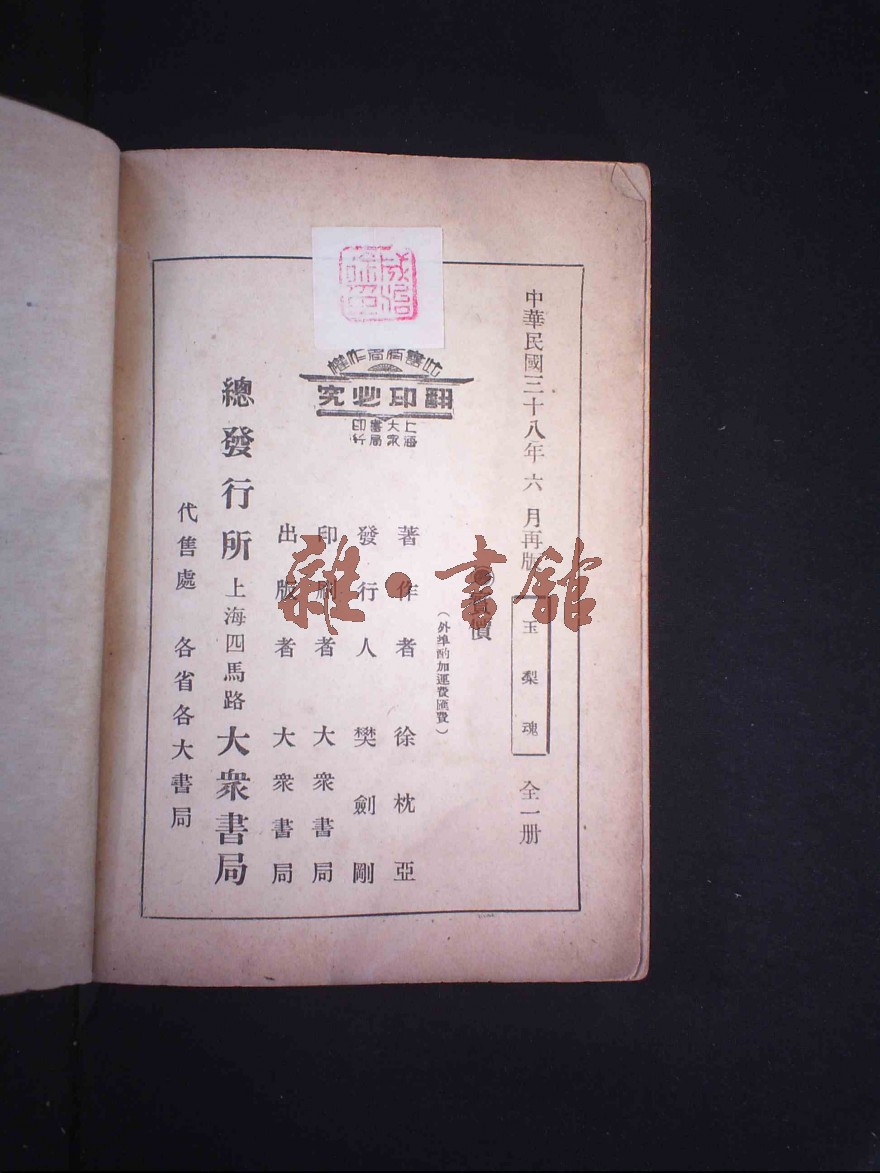 中華民國三十八年六月再版
玉梨魂
全一册
價
（外埠酌加運費匯費）
著作者 徐枕亞
發行人 樊劍剛
印刷者 大衆書局
出版者 大衆書局
此書有著作權
翻印必究
上海大衆書局印行
總發行所 上海四馬路 大衆書局
代售處 各省各大書局
雜·書館